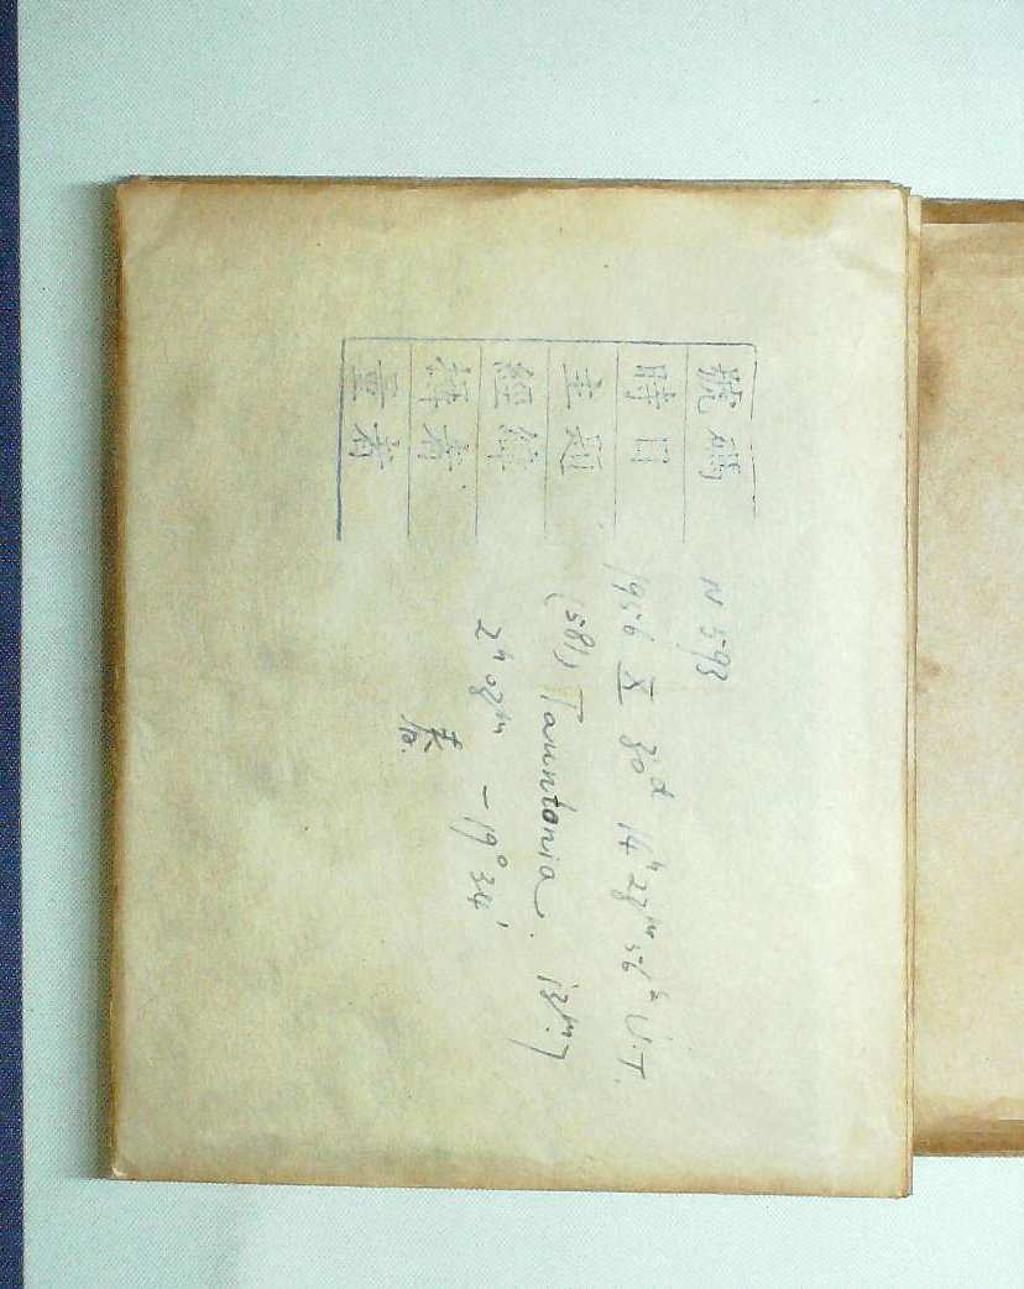 號碼 N 593
時日 1956 X 30d 14h 28m 56s U.T.
主题 (581) Tauntonia. 13m.7
經緯 2h 08m -19°34'
攝者
量者